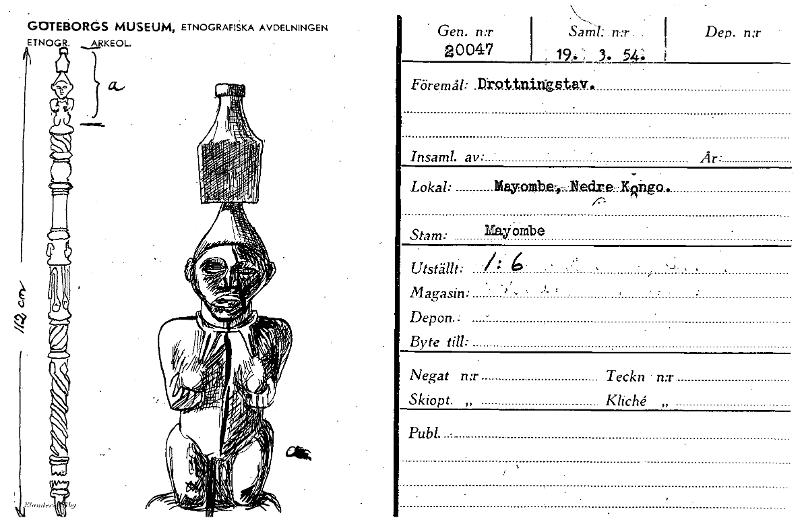 GÖTEBORGS MUSEUM, ETNOGRAFISKA AVDELNINGEN
ETNOGR. ARKEOL.
a
112 cm
Gen. n:r Saml. n:r Dep. n:r
20047 19. 3. 54.
Föremål: Drottningstav.
Insaml. av: År:
Lokal: Mayombe, Nedre Kongo.
Stam: Mayombe
Utställt: 1:6
Magasin:
Depon.:
Byte till:
Negat n:r Teckn n:r
Skiopt. „ Kliché „
Publ.